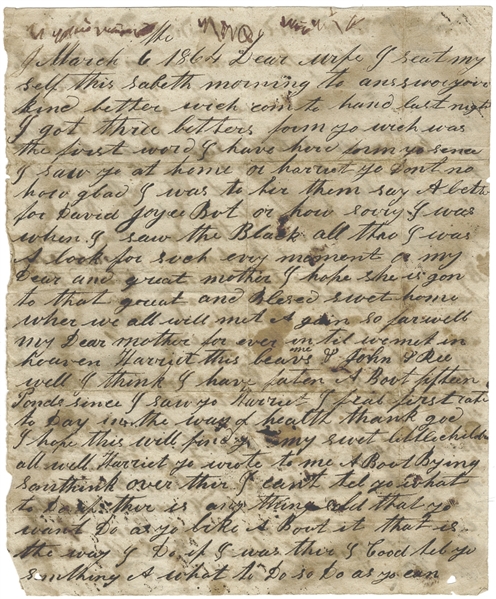 March 6 1864 Dear wife I seat my
self this sabeth morning to answor your
kind letter wich com to hand last night
I got three letters from yo wich was
the first word I have herd from yo sence
I saw yo at home or harriet yo Dont no
how glad I was to her them say A leter
for David Joyce But or how sorry I was
when I saw the Black all tho I was
A look for such evry moment o my
Dear and great mother I hope she is gon
to that great and Blesed swet home
wher we all will met A gain so farwell
my Dear mother for ever in til we met in
heaven Harriet this leavs me & John & Ree
well I think I have faten A Bout fifteen
Ponds since I saw yo Harriet I feal first rate
to Day in the way of health thank god
I hope this will find yo my swet little children
all well Harriet yo wrote to me A Bout Bying
somthink over ther I cant tel yo what
to Do if ther is any thing sold that yo
want Do as yo like A Bout it that is
the way I Do if I was ther I Cood tel yo
somthing A what to Do so Do as yo can